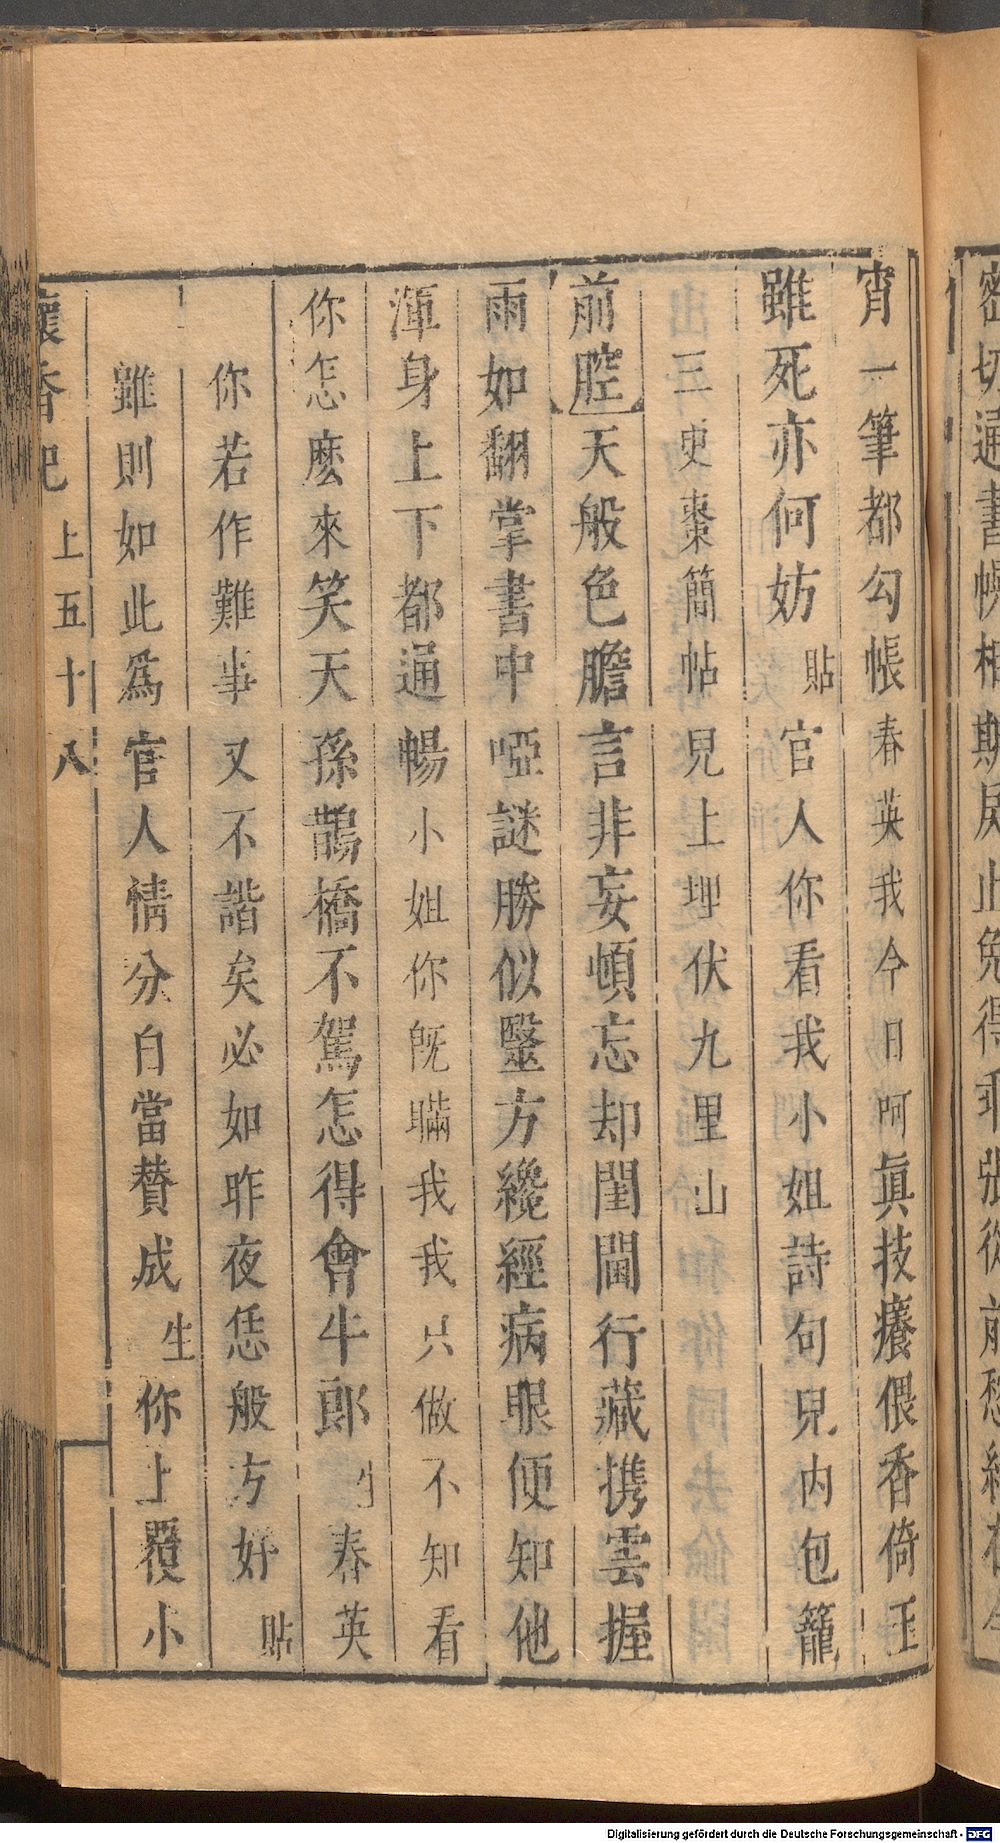 密切通書幌相期居止免得乖張從前愁緒在今
宵一筆都勾帳春英我今日呵眞技癢偎香倚玉
雖死亦何妨貼官人你看我小姐詩句兒內包籠
三更棗簡帖兒上埋伏九里山
前腔天般色膽言非妄頓忘却閨閫行藏携雲握
雨如翻掌書中啞謎勝似毉方纔經病眼便知他
渾身上下都通暢小姐你旣瞞我我只做不知看
你怎麽來笑天孫鵲橋不駕怎得會牛郎生春英
你若作難事又不諧矣必如昨夜恁般方好貼
雖則如此爲官人情分自當賛成生你上覆小
懷香記 上五十八
Digitalisierung gefördert durch die Deutsche Forschungsgemeinschaft - DFG